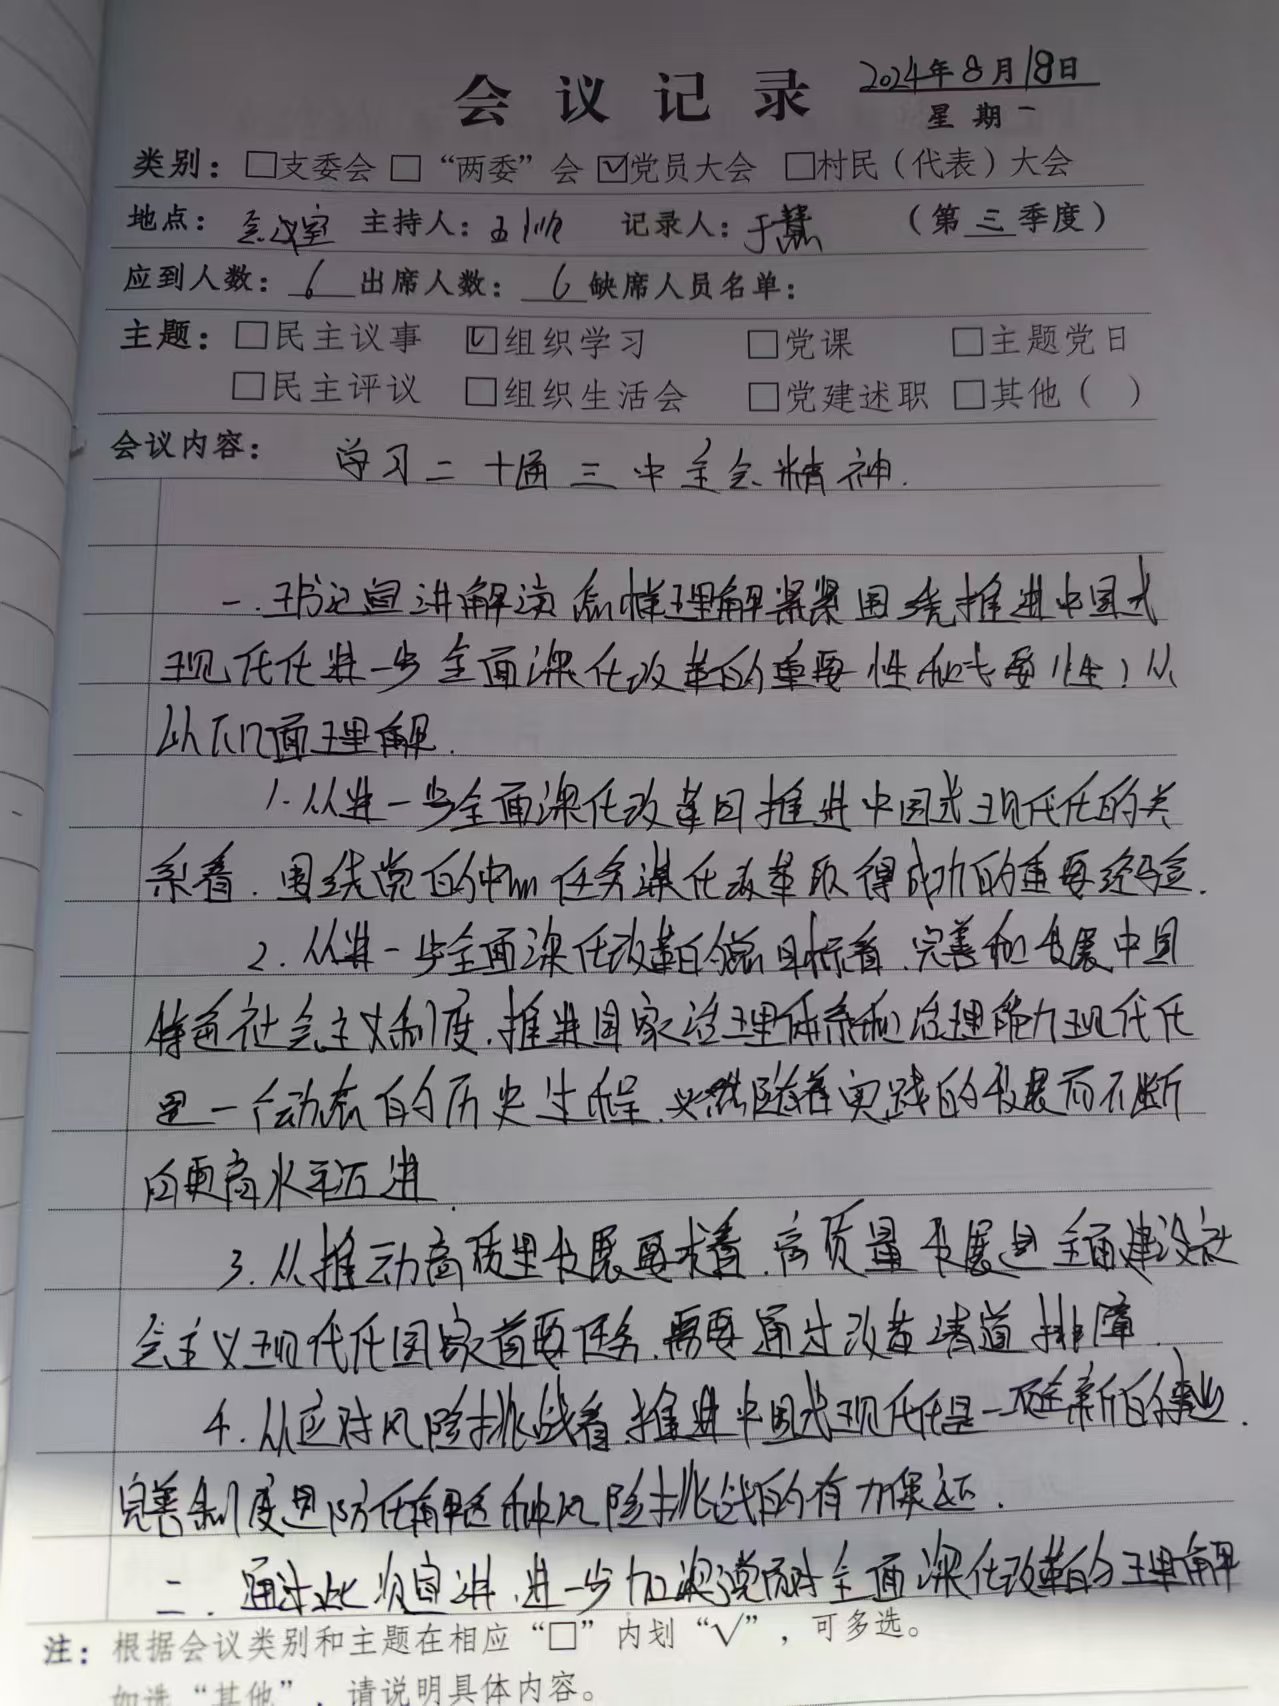 会议记录 2024年8月18日
星期一
类别：□支委会 □“两委”会 ☑党员大会 □村民（代表）大会
地点：会议室 主持人： 记录人：于慧 （第三季度）
应到人数：6 出席人数：6 缺席人员名单：
主题：□民主议事 ☑组织学习 □党课 □主题党日
□民主评议 □组织生活会 □党建述职 □其他（ ）
会议内容：学习二十届三中全会精神.
一.书记宣讲解读怎样理解紧紧围绕推进中国式
现代化进一步全面深化改革的重要性和必要性！从
以下几面理解.
1.从进一步全面深化改革同推进中国式现代化的关
系看.围绕党的中心任务谋化改革取得成功的重要经验.
2.从进一步全面深化改革的总目标看.完善和发展中国
特色社会主义制度.推进国家治理体系和治理能力现代化
是一个动态的历史过程.必然随着实践的发展而不断
向更高水平迈进.
3.从推动高质量发展要求看.高质量发展是全面建设社
会主义现代化国家首要任务.需要通过改革清道排障.
4.从应对风险挑战看.推进中国式现代化是一项全新的事业.
完善制度是防化解这种风险挑战的有力保证.
二.通过此次宣讲.进一步加深党员对全面深化改革的理解
注：根据会议类别和主题在相应“□”内划“√”，可多选。
如选“其他”，请说明具体内容。